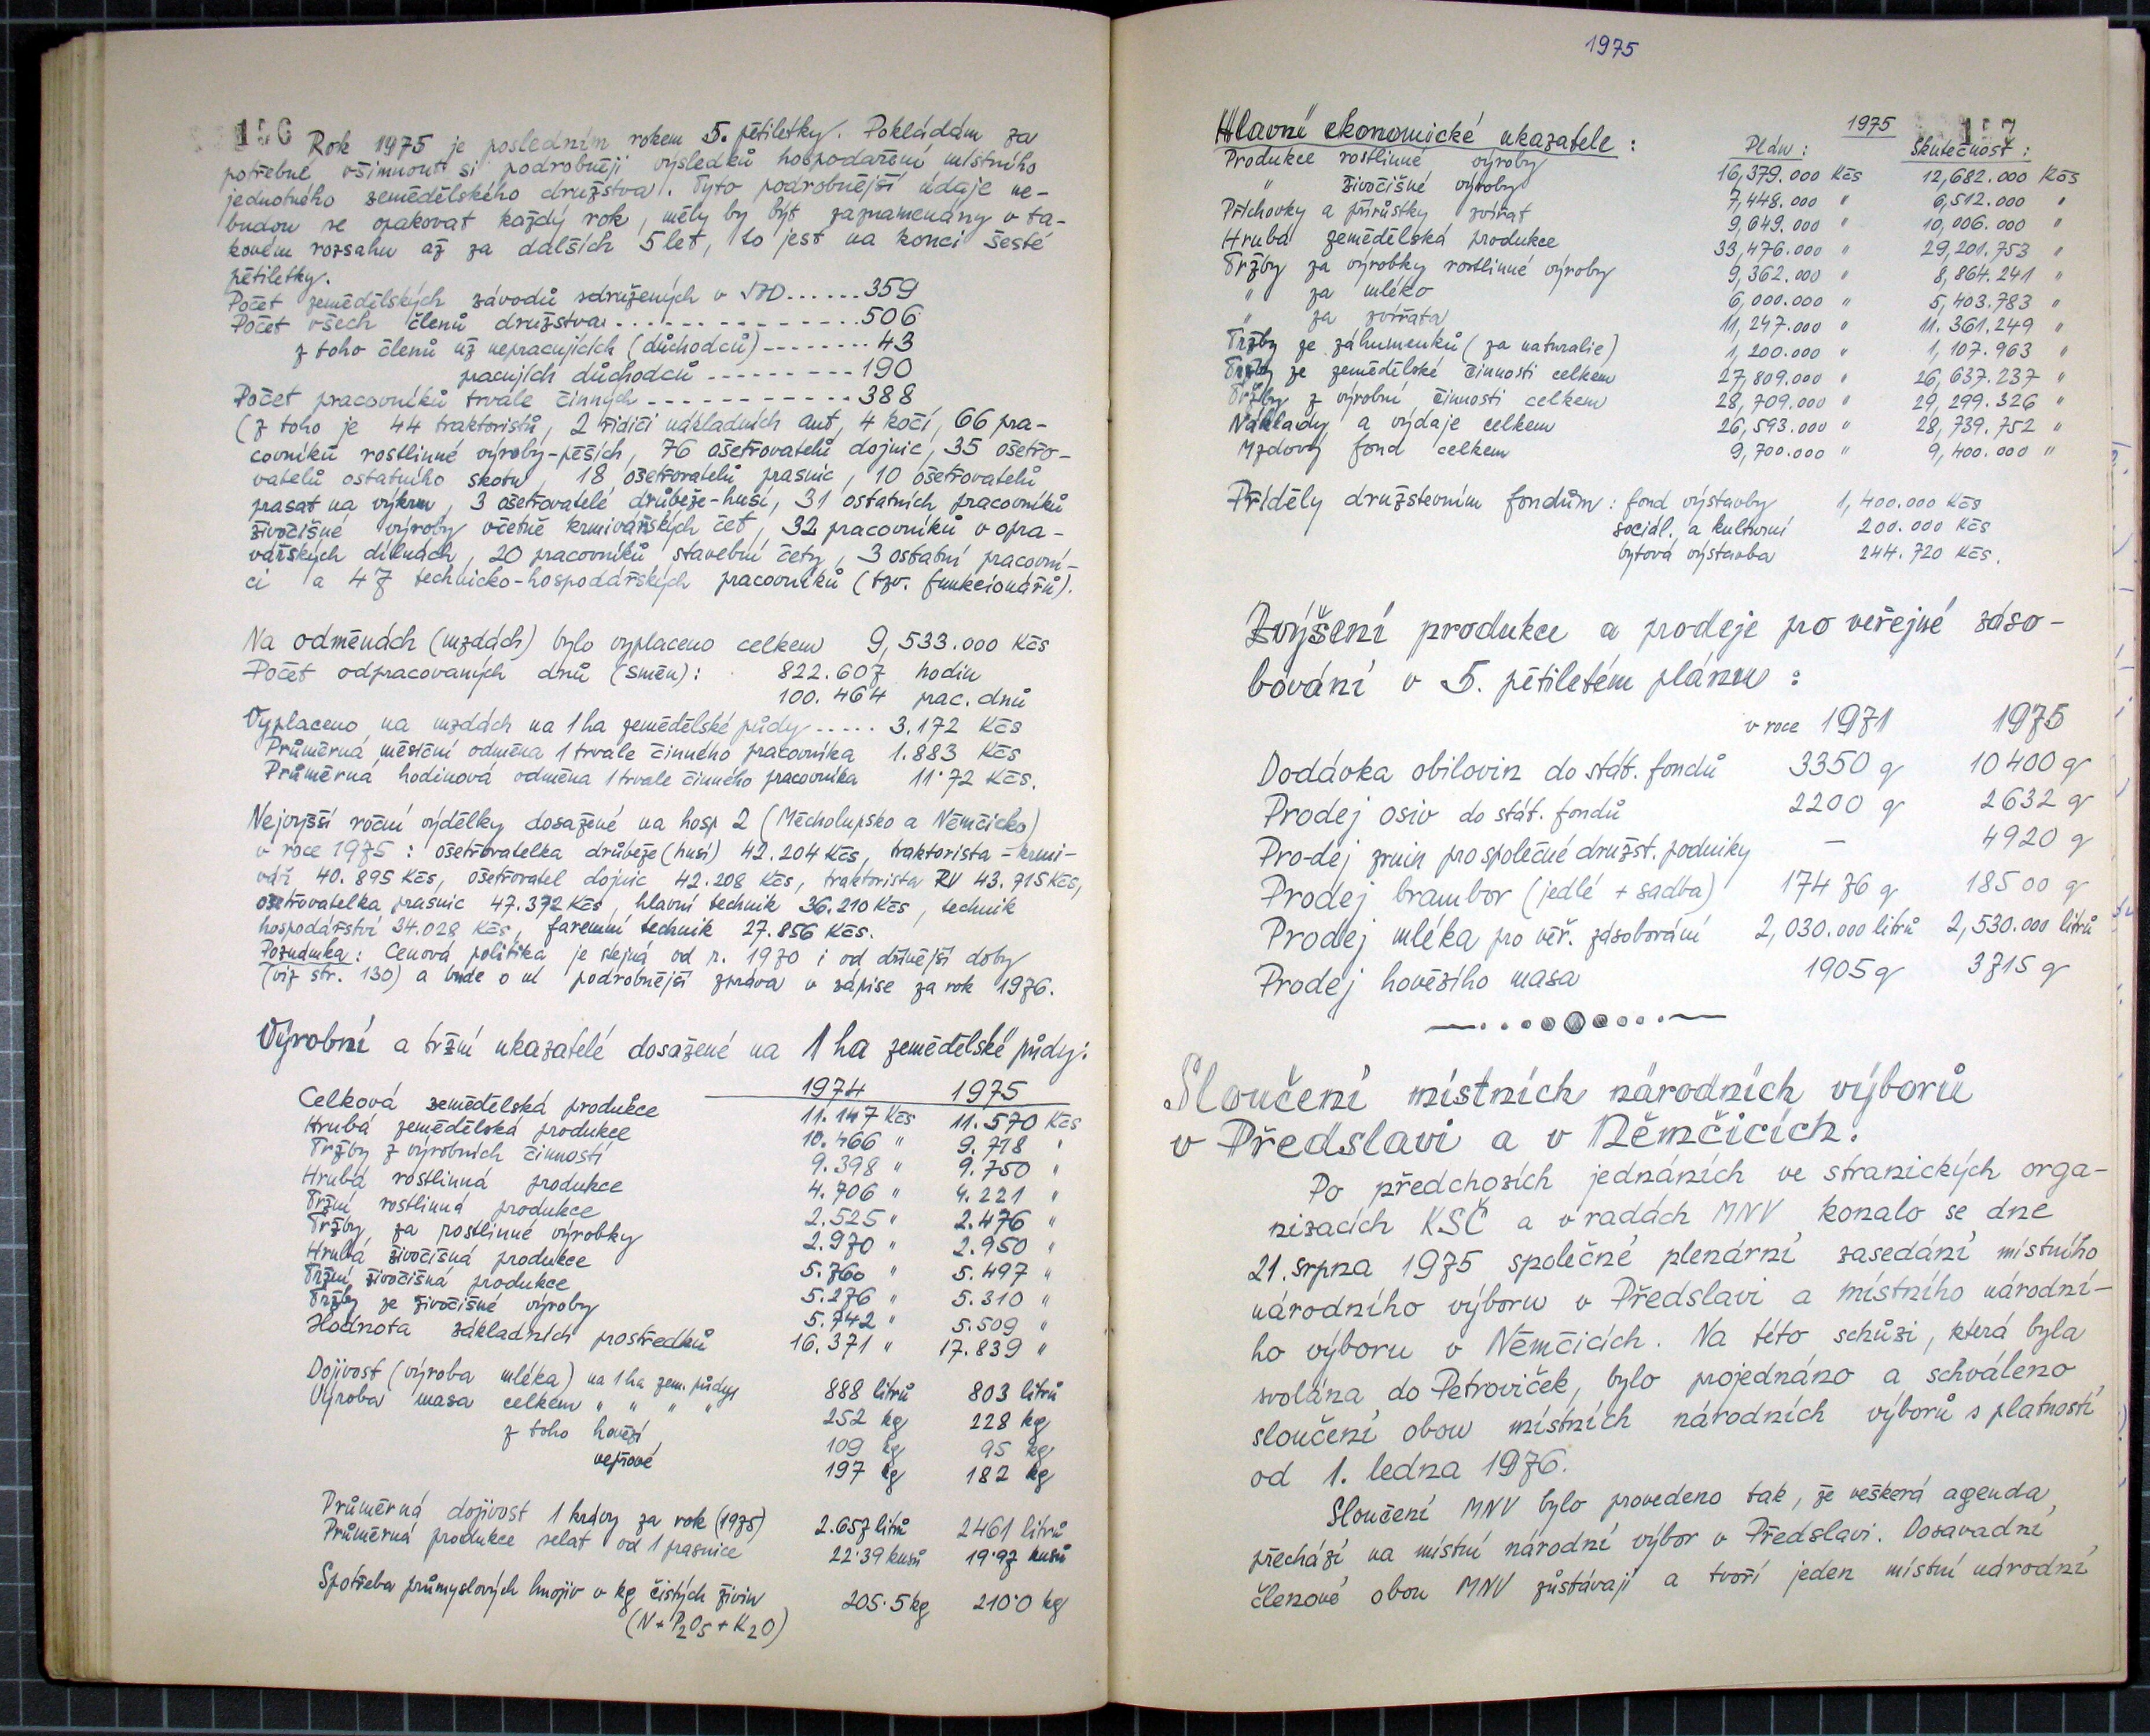 156
Rok 1975 je posledním rokem 5. pětiletky. Pokládám za
potřebné všimnout si podrobněji výsledků hospodaření místního
jednotného zemědělského družstva. Tyto podrobnější údaje ne-
budou se opakovat každý rok, měly by být zaznamenány v ta-
kovém rozsahu až za dalších 5 let, to jest na konci šesté
pětiletky.
Počet zemědělských závodů sdružených v JZD......359
Počet všech členů družstva..............506
z toho členů už nepracujících (důchodců)--------43
pracujích důchodců ---------190
Počet pracovníků trvale činných-----------388
(z toho je 44 traktoristů, 2 řidiči nákladních aut, 4 kočí, 66 pra-
covníků rostlinné výroby-pěších, 76 ošetřovatelů dojnic, 35 ošetřo-
vatelů ostatního skotu, 18 ošetřovatelů prasnic, 10 ošetřovatelů
prasat na výkrm, 3 ošetřovatelé drůbeže-husí, 31 ostatních pracovníků
živočišné výroby včetně krmivářských čet, 32 pracovníků v opra-
vářských dílnách, 20 pracovníků stavební čety, 3 ostatní pracovní-
ci a 47 technicko-hospodářských pracovníků (tzv. funkcionářů).
Na odměnách (mzdách) bylo vyplaceno celkem 9,533.000 Kčs
Počet odpracovaných dnů (směn): 822.607 hodin
100.464 prac. dnů
Vyplaceno na mzdách na 1 ha zemědělské půdy ..... 3.172 Kčs
Průměrná měsíční odměna 1 trvale činného pracovníka 1.883 Kčs
Průměrná hodinová odměna 1 trvale činného pracovníka 11·72 Kčs.
Nejvyšší roční výdělky dosažené na hosp 2 (Měcholupsko a Němčicko)
v roce 1975 : ošetřovatelka drůbeže (husí) 42.204 Kčs, traktorista - krmi-
vář 40.895 Kčs, ošetřovatel dojnic 42.208 Kčs, traktorista RV 43.715 Kčs,
ošetřovatelka prasnic 47.372 Kčs, hlavní technik 36.210 Kčs, technik
hospodářství 34.028 Kčs, faremní technik 27.856 Kčs.
Poznámka: Cenová politika je stejná od r. 1970 i od dřívější doby
(viz str. 130) a bude o ní podrobnější zpráva v zápise za rok 1976.
Výrobní a tržní ukazatelé dosažené na 1 ha zemědělské půdy:
1974 1975
Celková zemědělská produkce 11.147 Kčs 11.570 Kčs
Hrubá zemědělská produkce 10.466 " 9.718 "
Tržby z výrobních činností 9.398 " 9.750 "
Hrubá rostlinná produkce 4.706 " 4.221 "
Tržní rostlinná produkce 2.525 " 2.476 "
Tržby za rostlinné výrobky 2.970 " 2.950 "
Hrubá živočišná produkce 5.760 " 5.497 "
Tržní živočišná produkce 5.276 " 5.310 "
Tržby ze živočišné výroby 5.742 " 5.509 "
Hodnota základních prostředků 16.371 " 17.839 "
Dojivost (výroba mléka) na 1 ha zem. půdy 888 litrů 803 litrů
Výroba masa celkem " " " " 252 kg 228 kg
z toho hovězí 109 kg 95 kg
vepřové 197 kg 182 kg
Průměrná dojivost 1 krávy za rok (1975) 2.657 litrů 2461 litrů
Průměrná produkce selat od 1 prasnice 22·39 kusů 19·97 kusů
Spotřeba průmyslových hnojiv v kg čistých živin 205·5 kg 210·0 kg
(N + P2O5 + K2O)
1975
157
Hlavní ekonomické ukazatele : 1975
Plán : Skutečnost :
Produkce rostlinné výroby 16,379.000 Kčs 12,682.000 Kčs
" živočišné výroby 7,448.000 " 6,512.000 "
Příchovky a přírůstky zvířat 9,649.000 " 10,006.000 "
Hrubá zemědělská produkce 33,476.000 " 29,201.753 "
Tržby za výrobky rostlinné výroby 9,362.000 " 8,864.241 "
" za mléko 6,000.000 " 5,403.783 "
" za zvířata 11,247.000 " 11.361.249 "
Tržby ze záhumenků (za naturalie) 1,200.000 " 1,107.963 "
Tržby ze zemědělské činnosti celkem 27,809.000 " 26,637.237 "
Tržby z výrobní činnosti celkem 28,709.000 " 29,299.326 "
Náklady a výdaje celkem 26,593.000 " 28,739.752 "
Mzdový fond celkem 9,700.000 " 9,400.000 "
Příděly družstevním fondům : fond výstavby 1,400.000 Kčs
sociál. a kulturní 200.000 Kčs
bytová výstavba 244.720 Kčs.
Zvýšení produkce a prodeje pro veřejné záso-
bování v 5. pětiletém plánu :
v roce 1971 1975
Dodávka obilovin do stát. fondů 3350 q 10400 q
Prodej osiv do stát. fondů 2200 q 2632 q
Pro-dej zrnin pro společné družst. podniky — 4920 q
Prodej brambor (jedlé + sadba) 17476 q 18500 q
Prodej mléka pro veř. zásobování 2,030.000 litrů 2,530.000 litrů
Prodej hovězího masa 1905 q 3715 q
Sloučení místních národních výborů
v Předslavi a v Němčicích.
Po předchozích jednáních ve stranických orga-
nizacích KSČ a v radách MNV konalo se dne
21. srpna 1975 společné plenární zasedání místního
národního výboru v Předslavi a místního národní-
ho výboru v Němčicích. Na této schůzi, která byla
svolána do Petroviček, bylo projednáno a schváleno
sloučení obou místních národních výborů s platností
od 1. ledna 1976.
Sloučení MNV bylo provedeno tak, že veškerá agenda
přechází na místní národní výbor v Předslavi. Dosavadní
členové obou MNV zůstávají a tvoří jeden místní národní